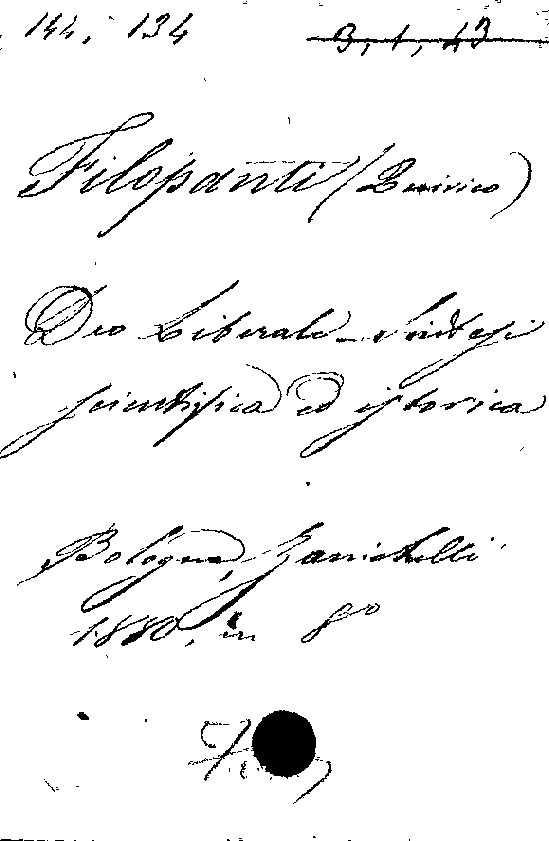 144, 134 3, 1, 43
Filopanti (Quirico)
Deo Liberale - Sintesi
scientifica ed istorica
Bologna, Zanichelli
1880, in 8°